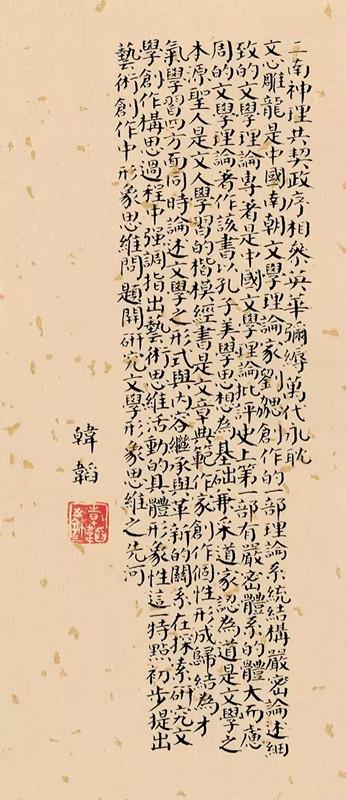 二南神理共契政序相參英華彌縟萬代永耽
文心雕龍是中國南朝文學理論家劉勰創作的一部理論系統結構嚴密論述細
致的文學理論專著是中國文學理論批評史上第一部有嚴密體系的體大而慮
周的文學理論著作該書以孔子美學思想為基礎兼采道家認為道是文學之
本源聖人是文人學習的楷模經書是文章典範作家創作個性形成歸結為才
氣學習四方面同時論述文學之形式與內容繼承與革新的關系在探索研究文
學創作構思過程中强調指出藝術思維活動的具體形象性這一特點初步提出
藝術創作中形象思維問題開研究文學形象思維之先河
韓韜